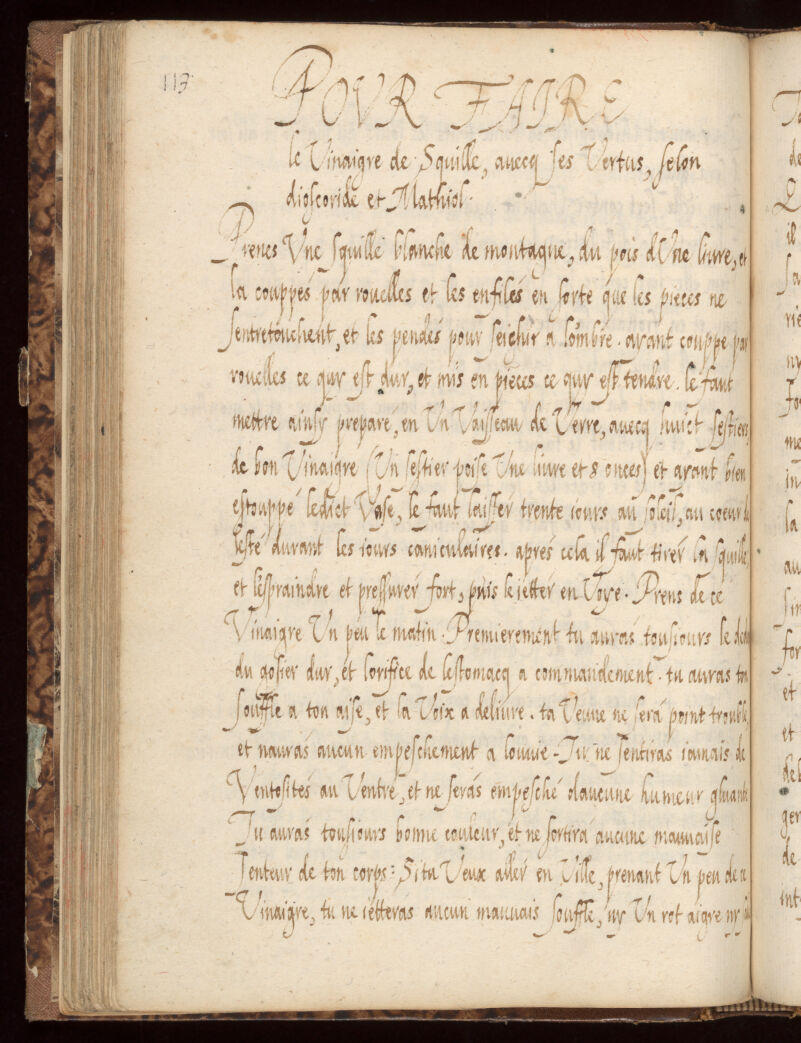 113
POUR FAIRE
le Vinaigre de Squille, auecq ses Vertus, selon
dioscoride et Mathiol.
Prenes Vne squille blanche de montagne, du pois dVne liure, et
la couppés par rouelles et les enfilés en sorte que les pieces ne
sentretouchent, et les pendés pour seicher a lombre. ayant couppe par
rouelles ce quy est dur, et mis en pieces ce quy est tendre. le faut
mettre ainsy prepare, en Vn Vaisseau de Verre, auecq huict sestiers
de bon Vinaigre (Vn sestier poise Vne liure et 8 onces) et ayant bien
estouppé ledict Vase, le faut laisser trente iours au soleil, au coeur de
lesté durant les iours caniculaires. apres cela il faut tirer la squille,
et lespraindre et pressurer fort, puis le ietter en Voye. Prens de ce
Vinaigre Vn peu le matin. Premierement tu auras tousiours le
du gosier dur, et lorifice de lestomacq a commandement. tu auras ton
souffle a ton aise, et la Voix a deliure. ta Veuue ne sera point trouble,
et nauras aucun empeschement a louuie - Tu ne sentiras iamais de
Ventosités au Ventre, et ne seras empesché daucune humeur gluante
Tu auras tousiours bonne couleur, et ne sortira aucune mauuaise
senteur de ton corps: Si tu Veux aller en Ville, prenant Vn peu de ce
Vinaigre, tu ne ietteras aucun mauuais souffle, ny Vn rot aigre ny